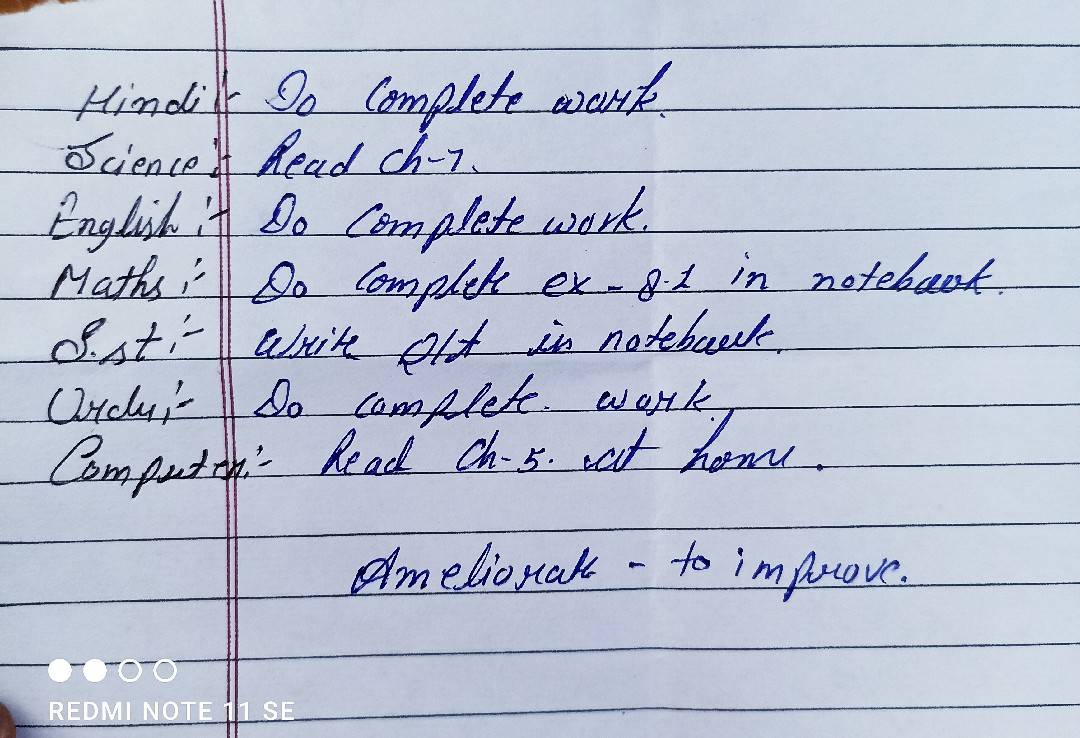 Hindi :- Do complete work.
Science :- Read Ch-7.
English :- Do complete work.
Maths :- Do complete ex-8.1 in notebook.
S.st :- Write Q/A in notebook.
Urdu :- Do complete work.
Computer :- Read Ch-5. at home.
Ameliorate - to improve.
REDMI NOTE 11 SE